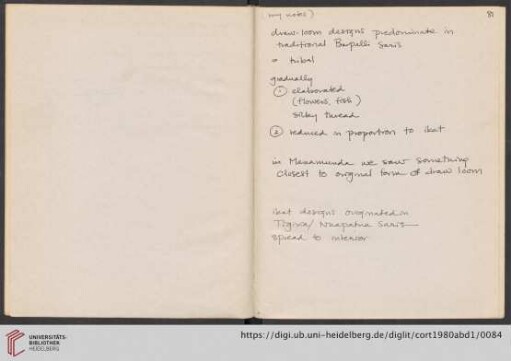 my notes)
draw-loom designs predominate in
traditional Barpalli Saris
= tribal
gradually
① elaborated
(flowers, fish)
silky thread
② reduced in proportion to ikat
in Manamunda we saw something
closest to original form of draw loom
ikat designs originated in
Tigiria/ Nuapatna Saris
spread to interior
UNIVERSITÄTS-
BIBLIOTHEK
HEIDELBERG
https://digi.ub.uni-heidelberg.de/diglit/cort1980abd1/0084